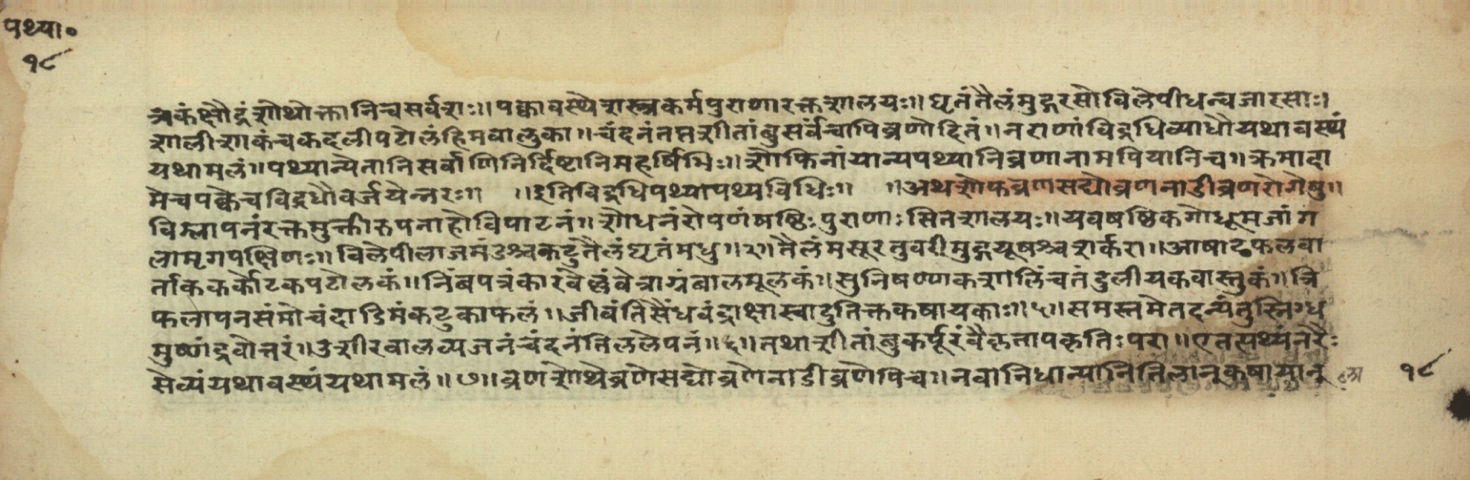 पथ्या॰
१८
त्रकंक्षौद्रंशोथोक्तानिचसर्वशः॥पक्वावस्थेशस्त्रकर्मपुराणारक्तशालयः॥घृतंतैलंमुद्गरसोविलेपीधन्वजारसाः।
शालीशाकंचकदलीपटोलंहिमवालुका॥चंदनंतप्तशीतांबुसर्वंचापिव्रणेहितं॥नराणांविद्रधिव्याधौयथावस्थं
यथामलं॥पथ्यान्येतानिसर्वाणिनिर्दिष्टानिमहर्षिभिः॥शोफिनांयान्यपथ्यानिव्रणानामपियानिच॥क्रमादा
मेचपक्वेचविद्रधौवर्जयेन्नरः॥ ॥इतिविद्रधिपथ्यापथ्यविधिः॥ ॥अथशोफव्रणसद्योव्रणनाडीव्रणरोगेषु॥
विम्लापनंरक्तमुक्तीरुपनाहोविपाटनं॥शोधनंरोपणंषष्ठिःपुराणाःसितशालयः॥यवषष्ठिकगोधूमजांग
लामृगपक्षिणः॥विलेपीलाजमंडश्चकटुतैलंघृतंमधु॥२॥तैलंमसूरतुवरीमुद्गयूषश्चशर्करा॥आषाढफलवा
र्ताककर्कोटकपटोलकं॥निंबपत्रंकारवेल्लंवेत्राग्रंबालमूलकं॥सुनिषण्णकशालिंचतंडुलीयकवास्तुकं॥त्रि
फलापनसंमोचंदाडिमंकटुकाफलं॥जीवंतिसैंधवंद्राक्षास्वादुतिक्तकषायकाः॥५॥समस्तमेतदन्यंतुस्निग्ध
मुष्णंद्रवोत्तरं॥उशीरवालव्यजनंचंदनंतिललेपनं॥६॥तथाशीतांबुकर्पूरंवैकृतापकृतिःपरा॥एतत्पथ्यंनरैः
सेव्यंयथावस्थंयथामलं॥७॥व्रणशोथेव्रणेसद्योव्रणेनाडीव्रणेपिच॥नवानिधान्यानितिलान्कुषायान्
१८